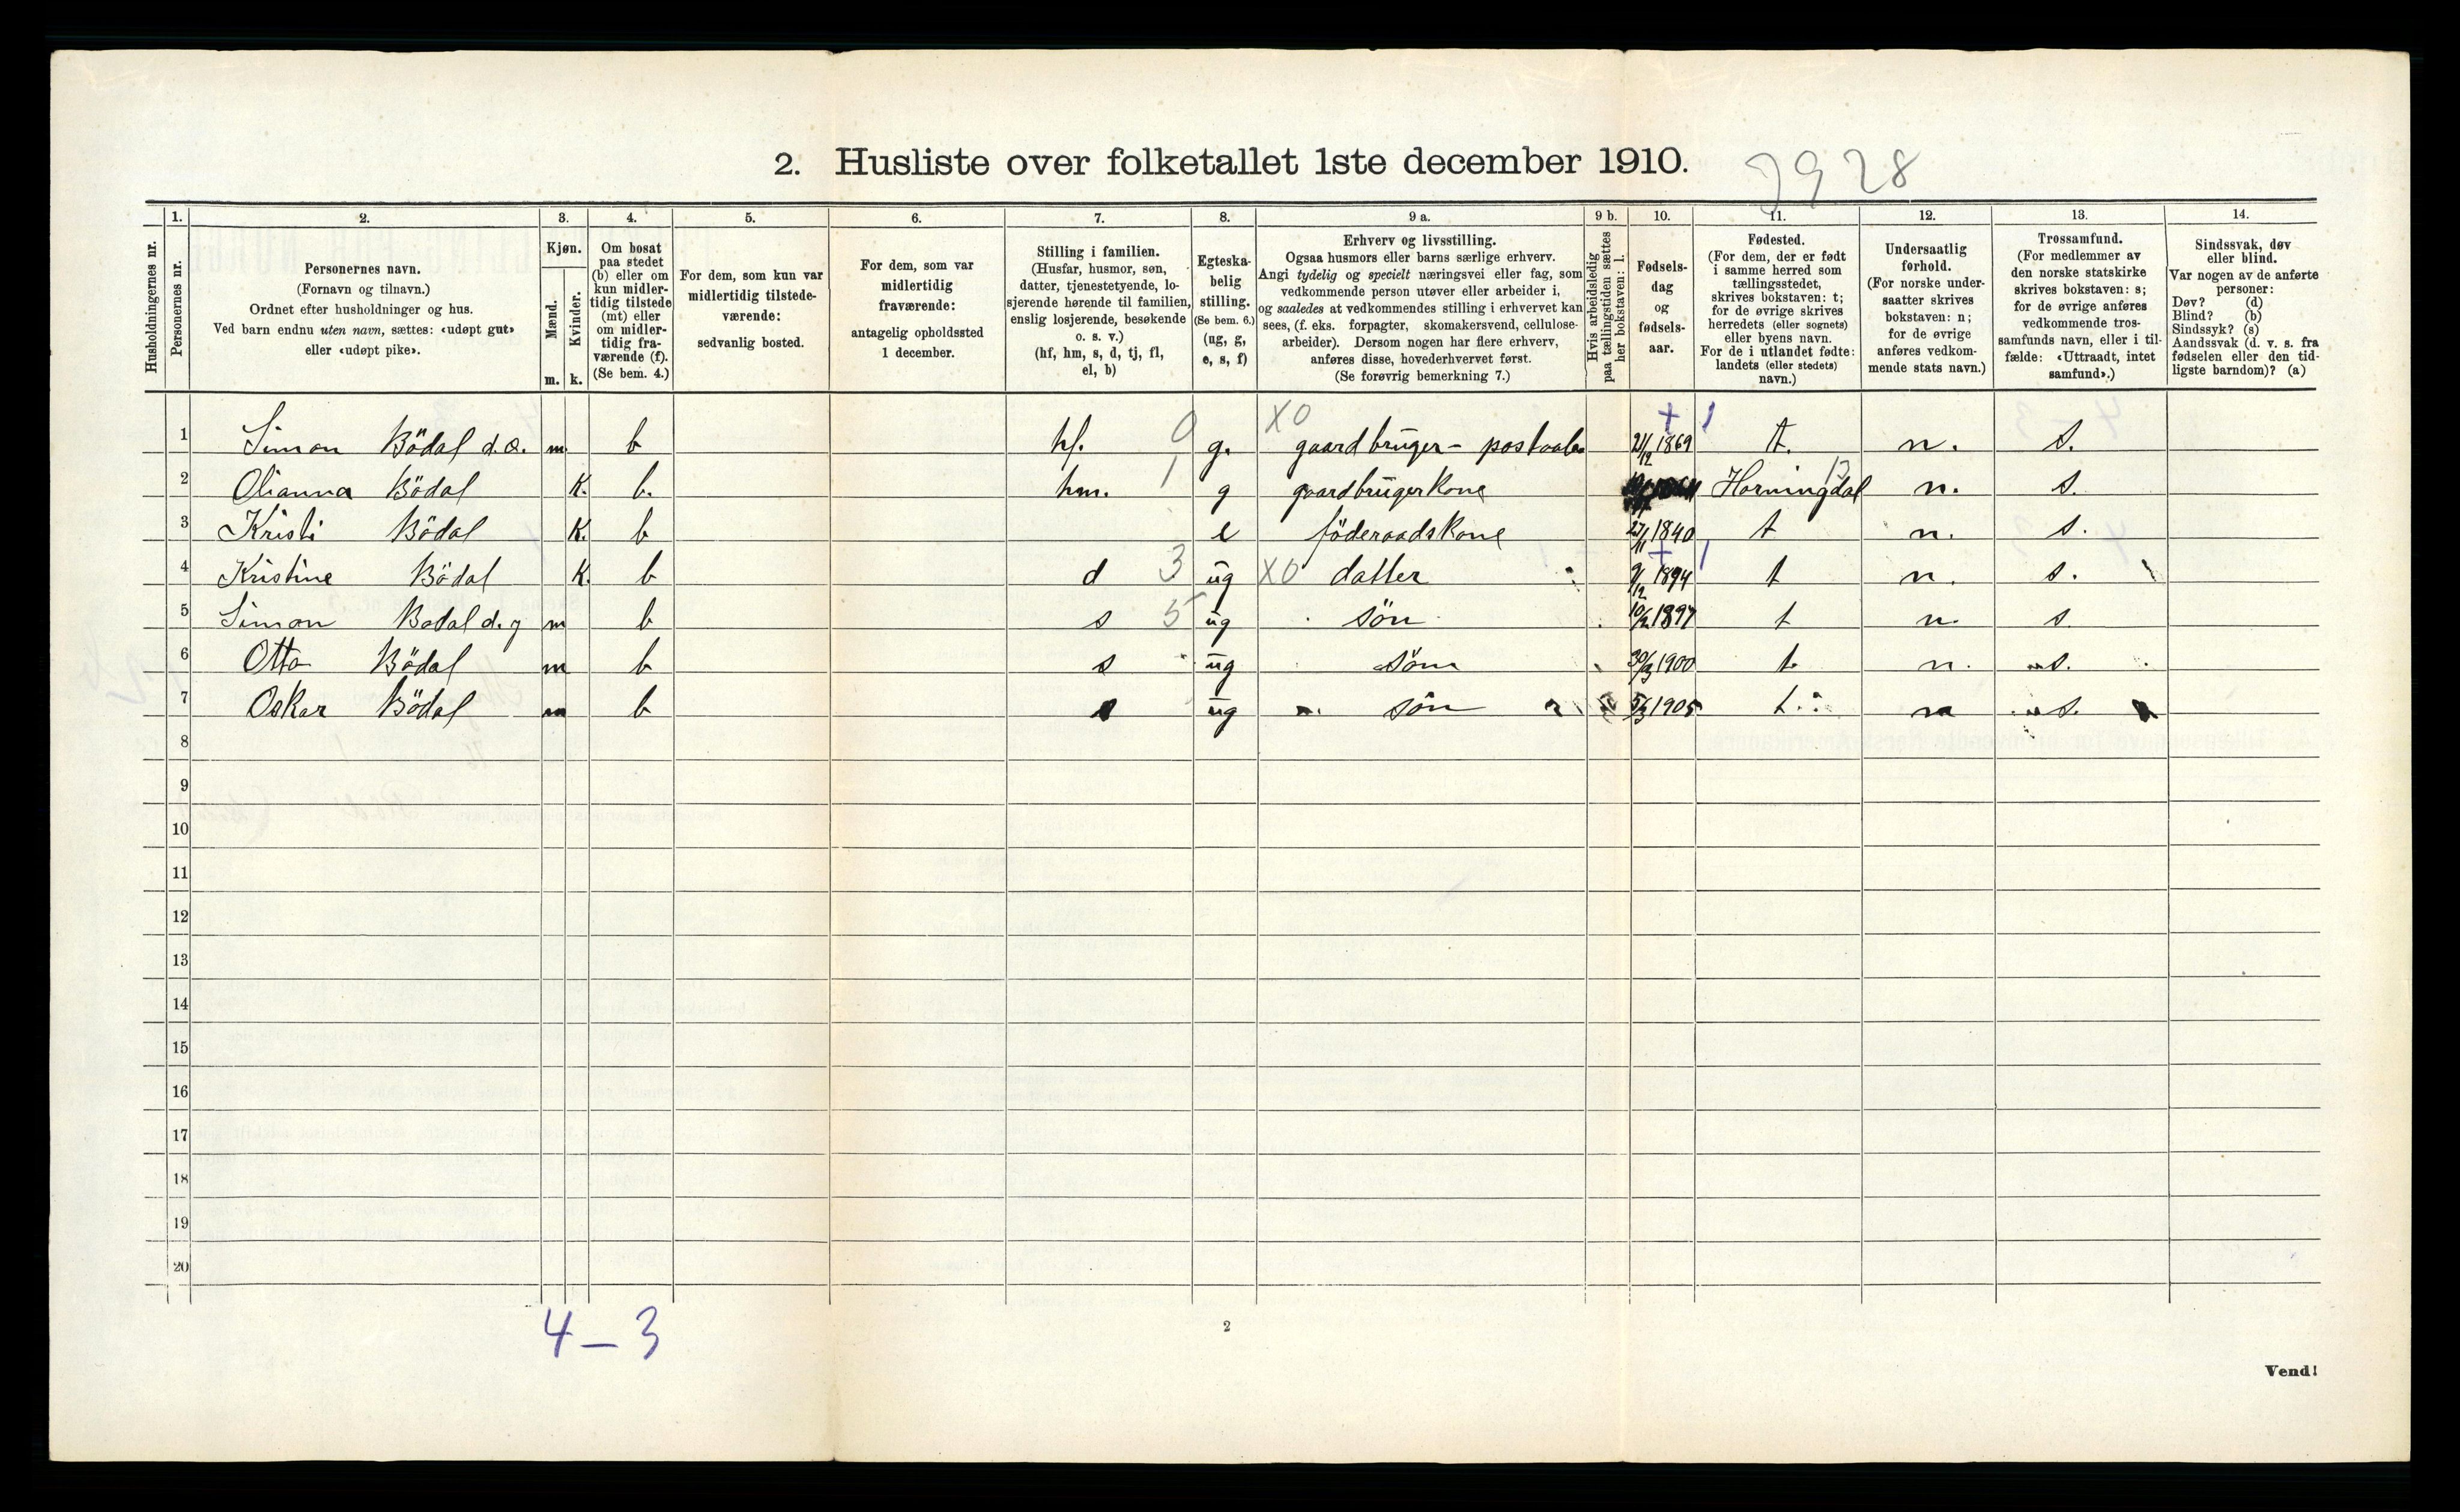 2. Husliste over folketallet 1ste december 1910.
7928
1. 2. 3. 4. 5. 6. 7. 8. 9 a. 9 b. 10. 11. 12. 13. 14.
Husholdningernes nr.
Personernes nr.
Personernes navn.
(Fornavn og tilnavn.)
Ordnet efter husholdninger og hus.
Ved barn endnu uten navn, sættes: «udøpt gut»
eller «udøpt pike».
Kjøn.
Mænd.
Kvinder.
m. k.
Om bosat
paa stedet
(b) eller om
kun midler-
tidig tilstede
(mt) eller
om midler-
tidig fra-
værende (f).
(Se bem. 4.)
For dem, som kun var
midlertidig tilstede-
værende:
sedvanlig bosted.
For dem, som var
midlertidig
fraværende:
antagelig opholdssted
1 december.
Stilling i familien.
(Husfar, husmor, søn,
datter, tjenestetyende, lo-
sjerende hørende til familien,
enslig losjerende, besøkende
o. s. v.)
(hf, hm, s, d, tj, fl,
el, b)
Egteska-
belig
stilling.
(Se bem. 6.)
(ug, g,
e, s, f)
Erhverv og livsstilling.
Ogsaa husmors eller barns særlige erhverv.
Angi tydelig og specielt næringsvei eller fag, som
vedkommende person utøver eller arbeider i,
og saaledes at vedkommendes stilling i erhvervet kan
sees, (f. eks. forpagter, skomakersvend, cellulose-
arbeider). Dersom nogen har flere erhverv,
anføres disse, hovederhvervet først.
(Se forøvrig bemerkning 7.)
Hvis arbeidsledig
paa tællingstiden sættes
her bokstaven: l.
Fødsels-
dag
og
fødsels-
aar.
Fødested.
(For dem, der er født
i samme herred som
tællingsstedet,
skrives bokstaven: t;
for de øvrige skrives
herredets (eller sognets)
eller byens navn.
For de i utlandet fødte:
landets (eller stedets)
navn.)
Undersaatlig
forhold.
(For norske under-
saatter skrives
bokstaven: n;
for de øvrige
anføres vedkom-
mende stats navn.)
Trossamfund.
(For medlemmer av
den norske statskirke
skrives bokstaven: s;
for de øvrige anføres
vedkommende tros-
samfunds navn, eller i til-
fælde: «Uttraadt, intet
samfund».)
Sindssvak, døv
eller blind.
Var nogen av de anførte
personer:
Døv? (d)
Blind? (b)
Sindssyk? (s)
Aandssvak (d. v. s. fra
fødselen eller den tid-
ligste barndom)? (a)
X0 + 1
1 Simon Bödal d.æ. m. b hf. 0 g. gaardbruger - postaabn 21/12 1869 t. n. s.
2 Olianna Bödal K. b. hm. 1 g gaardbrugerkone Horningdal 12 n. s.
3 Kristi Bödal K. b e föderaadskone 27/11 1840 t n. s.
+ 1
4 Kristine Bödal K. b d 3 ug X0 datter 9/12 1894 t n. s.
5 Simon Bödal d.y m b s 5 ug sön 1897 t n. s.
6 Otto Bödal m b s ug sön 30/3 1900 t. n. s.
7 Oskar Bödal m b s ug sön 5/3 1905 t. n s.
8
9
10
11
12
13
14
15
16
17
18
19
20
4 - 3
2
Vend!